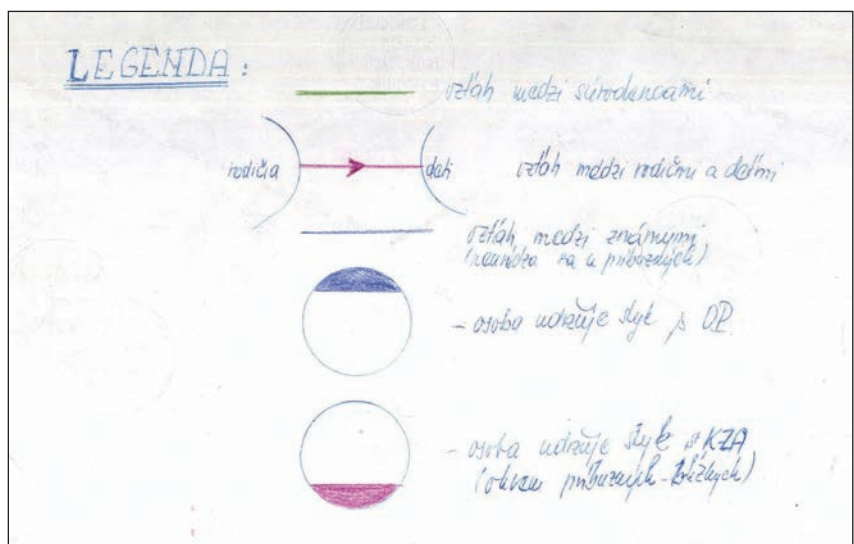 LEGENDA:
vzťah medzi súrodencami
rodičia
deti
vzťah medzi rodičmi a deťmi
vzťah medzi známymi
(neuvádza sa u príbuzných)
- osoba udržuje styk s O.P.
- osoba udržuje styk s KZA
(okrem príbuzných - blízkych)